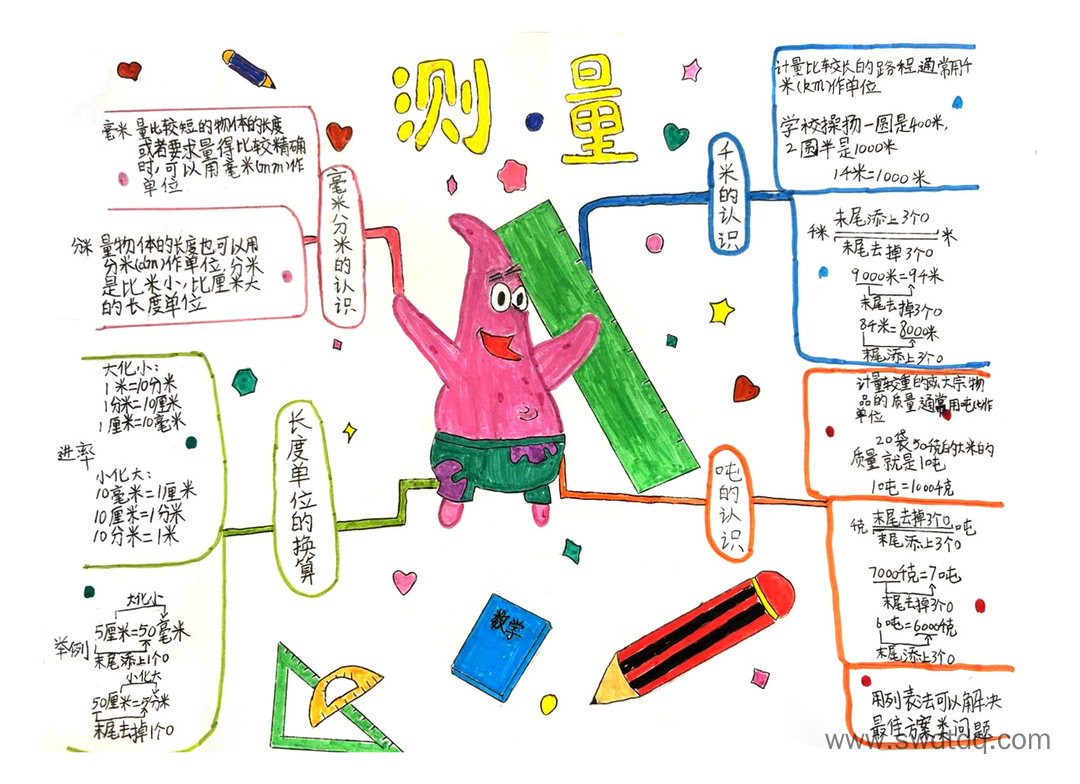 测量
毫米分米的认识
毫米 量比较短的物体的长度
或者要求量得比较精确
时,可以用毫米(mm)作
单位
分米 量物体的长度也可以用
分米(dm)作单位,分米
是比米小,比厘米大
的长度单位
长度单位的换算
进率
大化小:
1米=10分米
1分米=10厘米
1厘米=10毫米
小化大:
10毫米=1厘米
10厘米=1分米
10分米=1米
举例
大化小
5厘米=50毫米
末尾添上1个0
小化大
50厘米=5分米
末尾去掉1个0
千米的认识
计量比较长的路程,通常用千
米(km)作单位
学校操场一圈是400米,
2圈半是1000米
1千米=1000米
千米 末尾添上3个0 米
末尾去掉3个0
9000米=9千米
末尾去掉3个0
8千米=8000米
末尾添上3个0
吨的认识
计量较重的或大宗物
品的质量,通常用吨(t)作
单位
20袋50千克的大米的
质量就是1吨
10吨=1000千克
千克 末尾去掉3个0 吨
末尾添上3个0
7000千克=7吨
末尾去掉3个0
6吨=6000千克
末尾添上3个0
用列表法可以解决
最佳方案类问题
数学
www.swdtdq.com